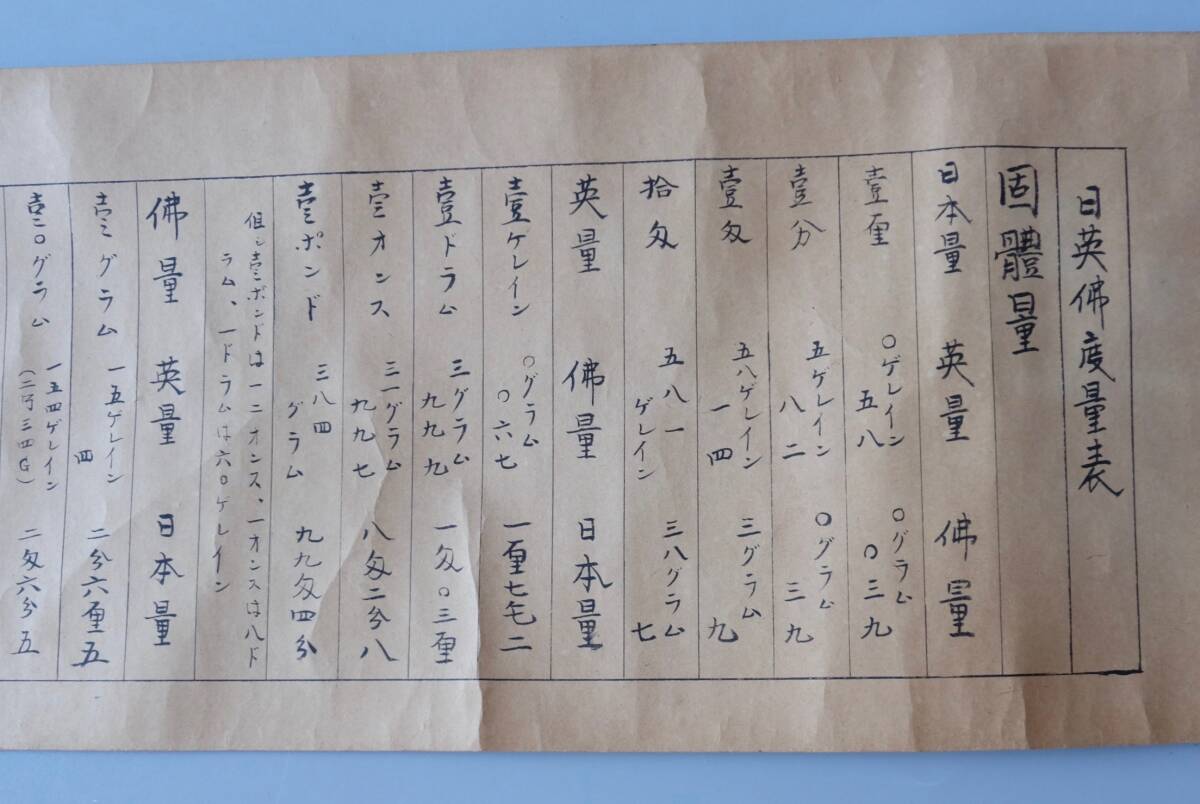 日英佛度量表
固體量
日本量 英量 佛量
壹厘 〇ゲレイン五八 〇グラム〇三九
壹分 五ゲレイン八二 〇グラム三九
壹匁 五八ゲレイン一四 三グラム九
拾匁 五八一ゲレイン 三八グラム七
英量 佛量 日本量
壹ケレイン 〇グラム〇六七 一厘七毛二
壹ドラム 三グラム九九九 一匁〇三厘
壹オンス 三一グラム九九七 八匁二分八
壹ポンド 三八四グラム 九九匁四分
但シ壹ポンドは一二オンス、一オンスは八ド
ラム、一ドラムは六〇ゲレイン
佛量 英量 日本量
壹グラム 一五ゲレイン四 二分六厘五
壹〇グラム 一五四ゲレイン(二丂三四G) 二匁六分五